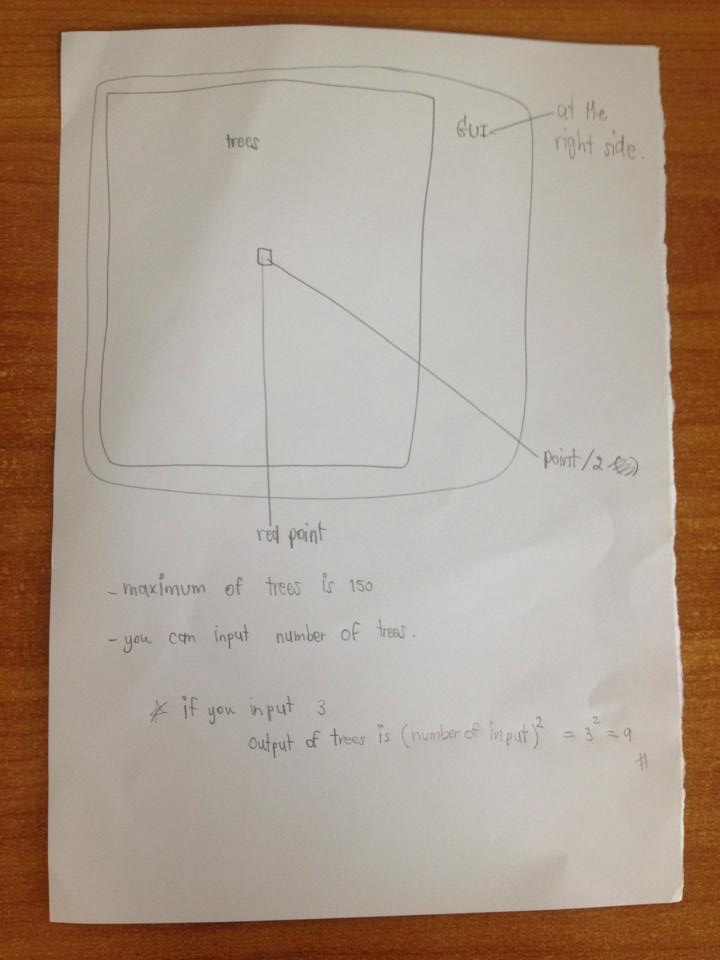 trees
GUI
at the
right side.
point/2
red point
- maximum of trees is 150
- you can input number of trees.
* if you input 3
output of trees is (number of input)² = 3² = 9
#